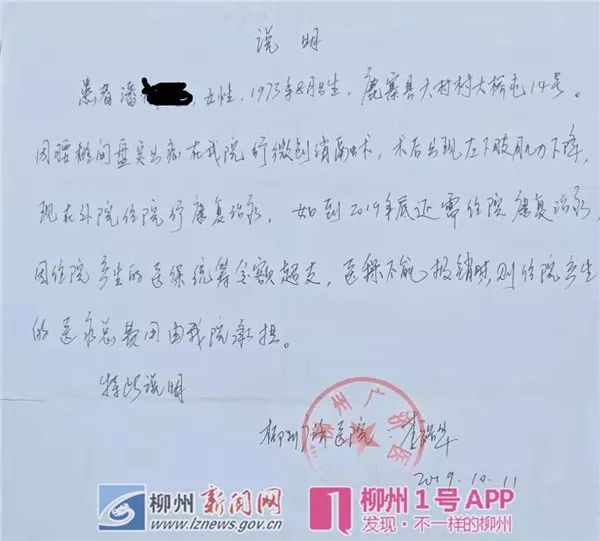 说明
患者潘 ，女性，1973年8月8生，鹿寨县大村村大榕屯14号。
因腰椎间盘突出症在我院行微创消融术，术后出现左下肢肌力下降，
现在外院住院行康复治疗，如到2019年底还需住院康复治疗，
因住院产生的医保统筹金额超支，医保不能报销时，则住院产生
的医疗总费用由我院承担。
特此说明
柳州广济医院：李
2019.10.11
柳州新闻网
www.lznews.gov.cn
柳州1号APP
发现·不一样的柳州